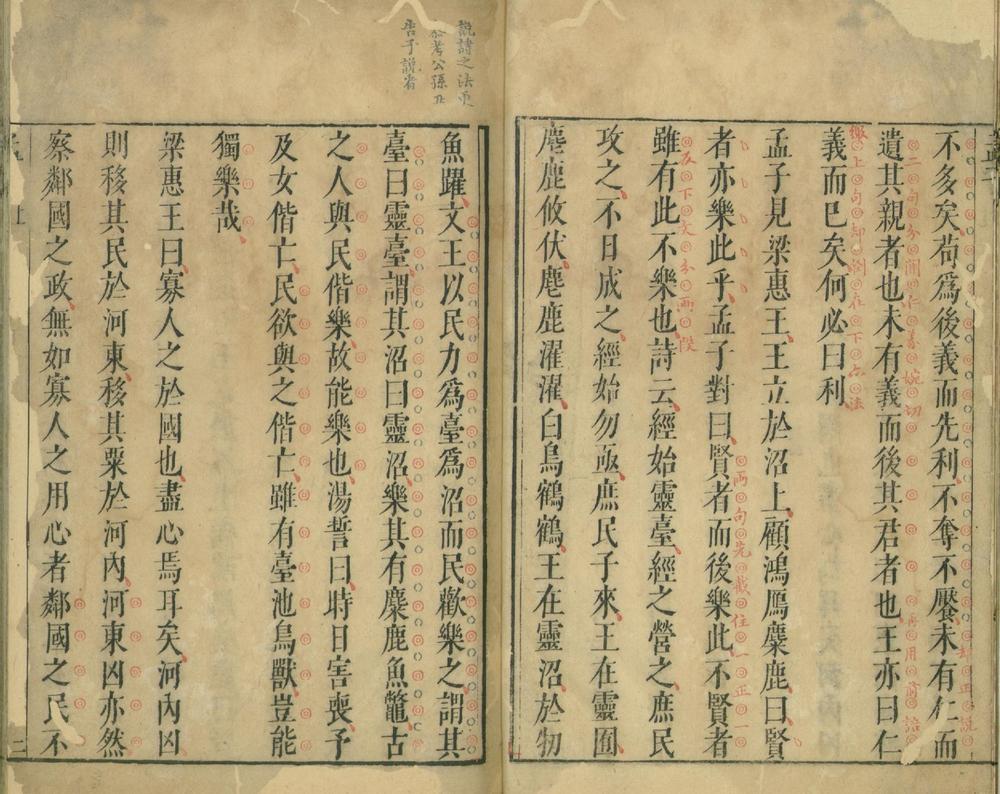 不多矣苟爲後義而先利不奪不饜未有仁而
遺其親者也未有義而後其君者也王亦曰仁
義而已矣何必曰利
孟子見梁惠王王立於沼上顧鴻鴈麋鹿曰賢
者亦樂此乎孟子對曰賢者而後樂此不賢者
雖有此不樂也詩云經始靈臺經之營之庶民
攻之不日成之經始勿亟庶民子來王在靈囿
麀鹿攸伏麀鹿濯濯白鳥鶴鶴王在靈沼於牣
魚躍文王以民力爲臺爲沼而民歡樂之謂其
臺曰靈臺謂其沼曰靈沼樂其有麋鹿魚鼈古
之人與民偕樂故能樂也湯誓曰時日害喪予
及女偕亡民欲與之偕亡雖有臺池鳥獸豈能
獨樂哉
梁惠王曰寡人之於國也盡心焉耳矣河內凶
則移其民於河東移其粟於河內河東凶亦然
察鄰國之政無如寡人之用心者鄰國之民不
說詩之法
參考公孫丑
告子說者
二句分開仁義婉切
繳上句却倒在下六法
兩句先截住一正一
反下文分兩段